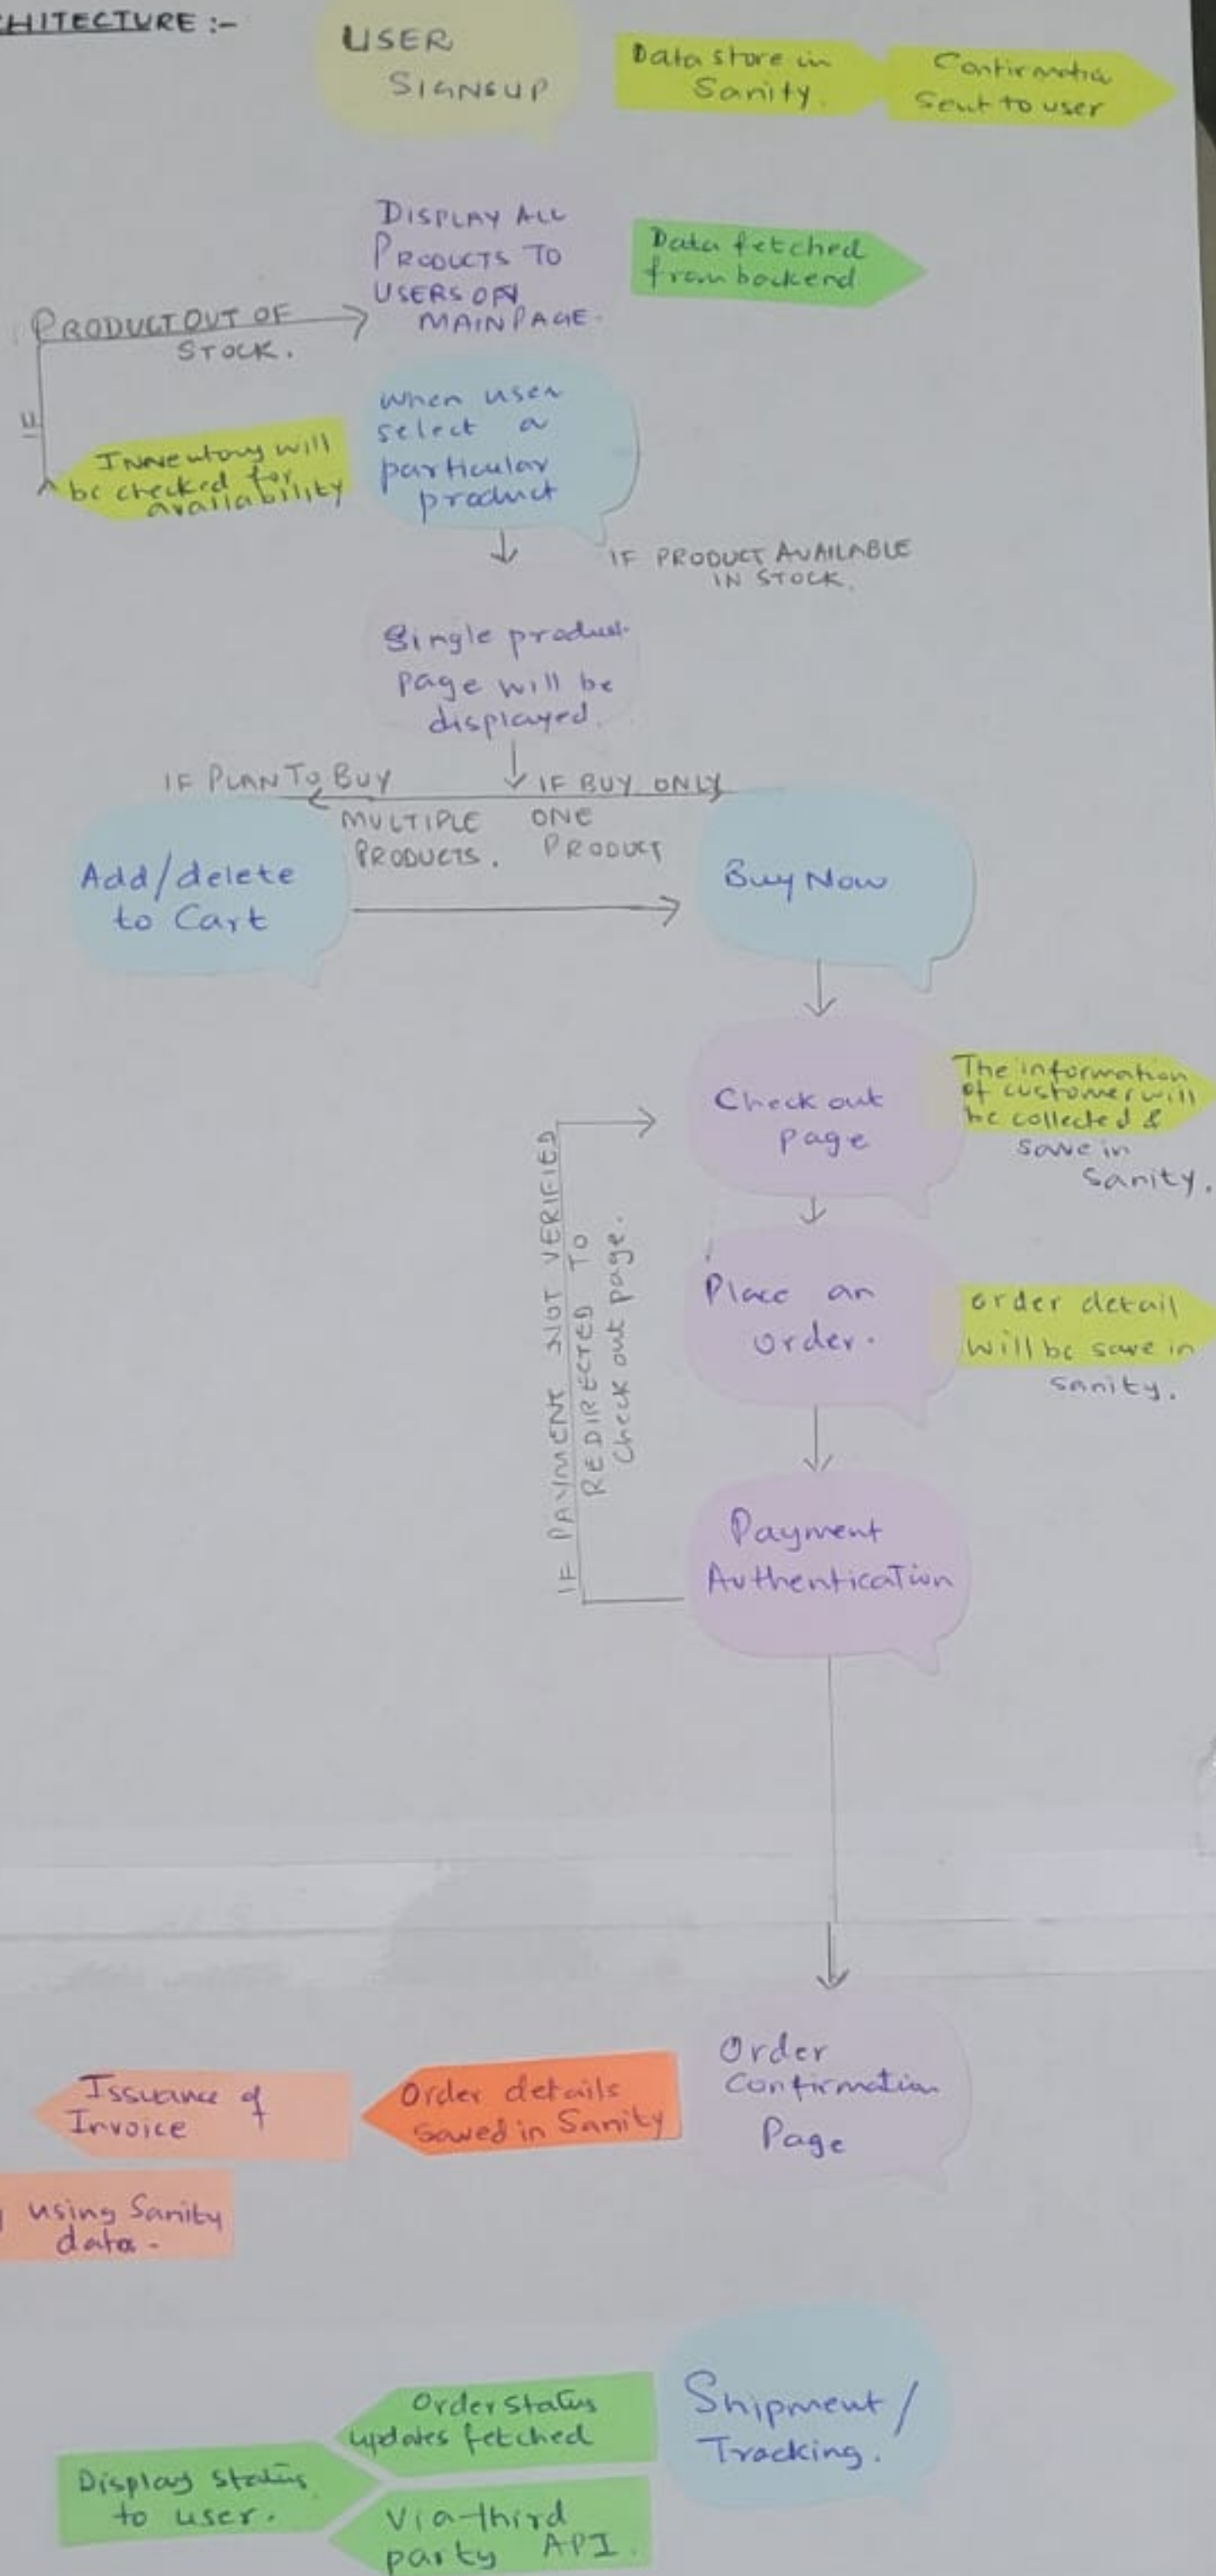 HITECTURE :-
USER
SIGNSUP
Data store in
Sanity.
Confirmation
Sent to user
DISPLAY ALL
PRODUCTS TO
USERS ON
MAIN PAGE.
Data fetched
from backend
PRODUCT OUT OF
STOCK.
IF
Innentory will
be checked for
availability
When user
select a
particular
product
IF PRODUCT AVAILABLE
IN STOCK.
Single product
page will be
displayed.
IF PLAN TO BUY
MULTIPLE
PRODUCTS.
IF BUY ONLY
ONE
PRODUCT
Add/delete
to Cart
Buy Now
Check out
page
The information
of customer will
be collected &
save in
Sanity.
IF PAYMENT NOT VERIFIED
REDIRECTED TO
Check out page.
Place an
order.
order detail
will be save in
sanity.
Payment
Authentication
Order
Confirmation
Page
Order details
saved in Sanity
Issuance of
Invoice
using Sanity
data.
Shipment/
Tracking.
Order status
updates fetched
Display status
to user.
Via-third
party API.